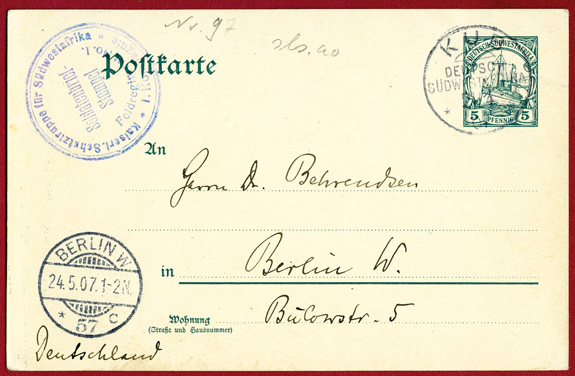 Nr. 97
Kaiserl. Schutztruppe für Südwestafrika
Soldatenbrief
Stempel
Postkarte
KUB
DEUTSCH
SÜDWEST
DEUTSCH-SÜDWESTAFRIKA
5 PFENNIG 5
An
Herrn Dr. Behrendsen
in Berlin W.
Wohnung
(Straße und Hausnummer)
Bülowstr. 5
BERLIN W
24.5.07.1-2N.
* 57 c
Deutschland